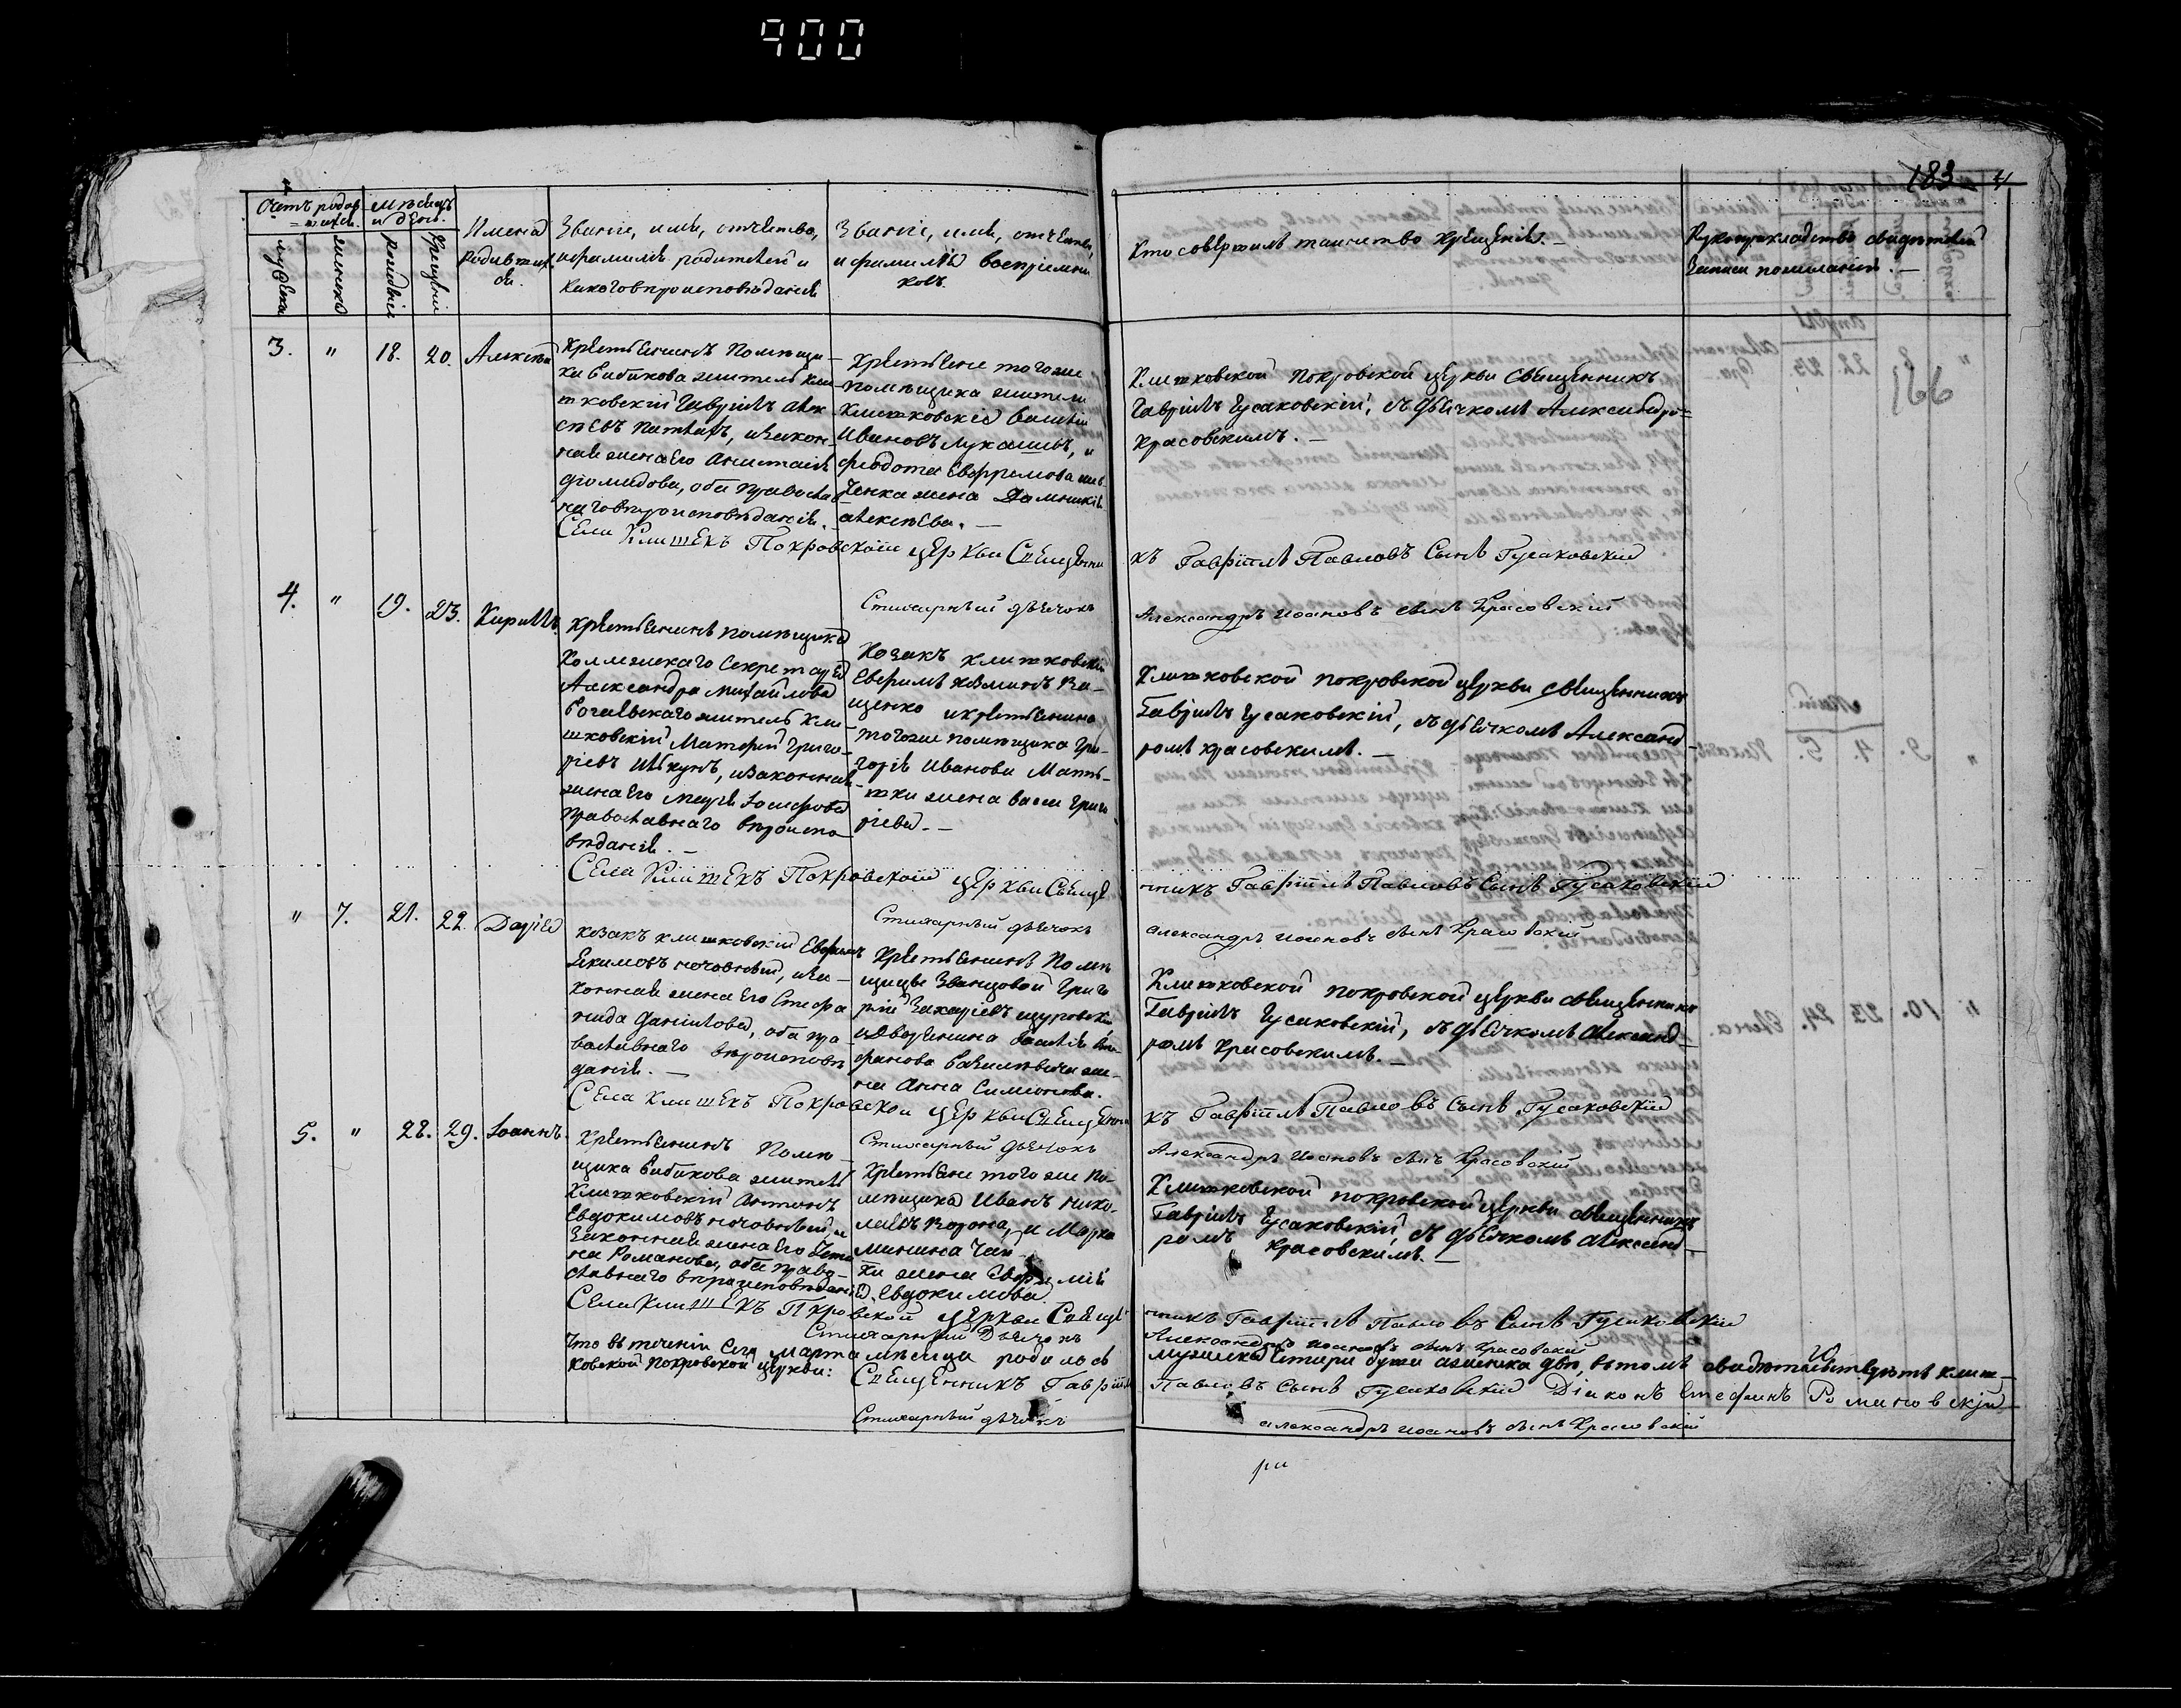 900
183
Счетъ родив-
шихся.
мѣсяцъ
и день.
мужеска
женска
рожденія
крещенія
Имена
родивших
ся.
Званіе, имя, отчество,
и фамилія родителей и
какого вѣроисповѣданія
Званіе, имя, отчество,
и фамилія воспріемни
ковъ.
Кто совершилъ таинство крещенія.
Рукоприкладство свидѣтелей
записи по желанію.
3. " 18. 20. Алексѣй
Крестьянинъ Помѣщи-
ка Бибикова житель Кли
шковскій Гавріилъ Алек
сѣевъ, и закон-
ная жена его Анастасія
Діомидова, оба Правосла
наго вѣроисповѣданія.
Крестьяне тогоже
помѣщика жители
Клишковскіе Василій
Ивановъ Лукашъ, и
Феодота Евфремова Шев
ченка жена Домникія
Алексѣева.
Клишковской Покровской церкви священникъ
Гавріилъ Гусаковскій, съ дьячкомъ Александро-
Красовскимъ.
Села Клишекъ Покровской церкви Священни
къ Гавріилъ Павловъ Сынъ Гусаковскій
Стихарный дьячокъ
Александръ Иоановъ сынъ Красовскій
4. " 19. 23. Кириллъ
Крестьянинъ помѣщика
Коллежскаго Секретаря
Александра Михайлова
житель Кли
шковскій Матфей Григо-
ріевъ, и законная
жена его Марія Іосифова
Православнаго вѣроиспо
вѣданія.
Козакъ Клишковскій
Евфимъ Козминъ Ва-
щенко и крестьянина
тогоже помѣщика Гри-
горія Иванова Мать-
шки жена Васса Григо
ріева.
Клишковской покровской церкви священникъ
Гавріилъ Гусаковскій, съ дьячкомъ Александ-
ромъ Красовскимъ.
Села Клишекъ Покровской церкви Свяще
нникъ Гавріилъ Павловъ Сынъ Гусаковскій
Стихарный дьячокъ
Александръ Иоановъ сынъ Красовскій
" 7. 21. 22. Дарія
Козакъ клишковскій Евфимъ
Екимовъ Ночовный, и за-
конная жена его Стефа
нида Данилова, оба пра
вославнаго вѣроисповѣ
данія.
Крестьянинъ Помѣ
щицы Званцовой Григо
рій Захаріевъ Щуровскій
и Дворянина Василія Сте
фанова жена
Анна Симіонова.
Клишковской покровской церкви священникъ
Гавріилъ Гусаковскій, съ дьячкомъ Александ-
ромъ Красовскимъ.
Села Клишекъ Покровской церкви Священни
къ Гавріилъ Павловъ Сынъ Гусаковскій
Стихарный дьячокъ
Александръ Иоановъ сынъ Красовскій
5. " 28. 29. Іоаннъ.
Крестьянинъ Помѣ-
щика Бибикова житель
Клишковскій Антонъ
Евдокимовъ Ночовный, и
законная жена его Татія
на Романова, оба Право-
славнаго вѣроисповѣданія.
Крестьяне того же По-
мѣщика Иванъ Нико-
лаевъ Ворона, и Марка
Минина Чай
ки жена Евфимія
Евдокимова
Клишковской покровской церкви священникъ
Гавріилъ Гусаковскій, съ дьячкомъ Александ-
ромъ Красовскимъ.
Села Клишекъ Покровской церкви Свяще
нникъ Гавріилъ Павловъ Сынъ Гусаковскій
Стихарный Дьячокъ
Александръ Иоановъ сынъ Красовскій
Что въ теченіи сего марта мѣсяца родилось мужеска четыри души а женска двѣ, въ томъ свидѣтельствуютъ клиш-
ковской покровской церкви: Священникъ Гавріилъ Павловъ Сынъ Гусаковскій Діаконъ Стефанъ Романовскій
Стихарный дьячокъ Александръ Иоановъ сынъ Красовскій
ри